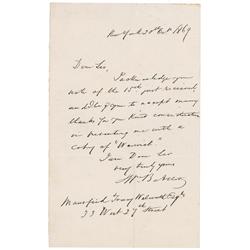 New York 20th Oct 1869
Dear Sir,
I acknowledge your
note of the 15th just received
and beg you to accept many
thanks for your kind consideration
in presenting me with a
copy of "Warwick".
I am Dear Sir
very truly yours
Mansfield Tracy Walworth Esqr
23 West 27th Street